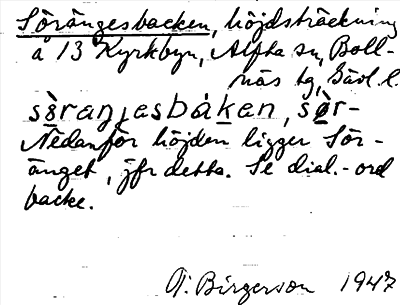 Sörängesbacken, höjdsträckning
å 13 Kyrkbyn, Alfta sn, Boll-
näs tg, Gävl. l.
sö̀raŋ̣esbàken, sö̀r-
Nedanför höjden ligger Sör-
änget, jfr detta. Se dial.-ord
backe.
G. Birgerson 1947